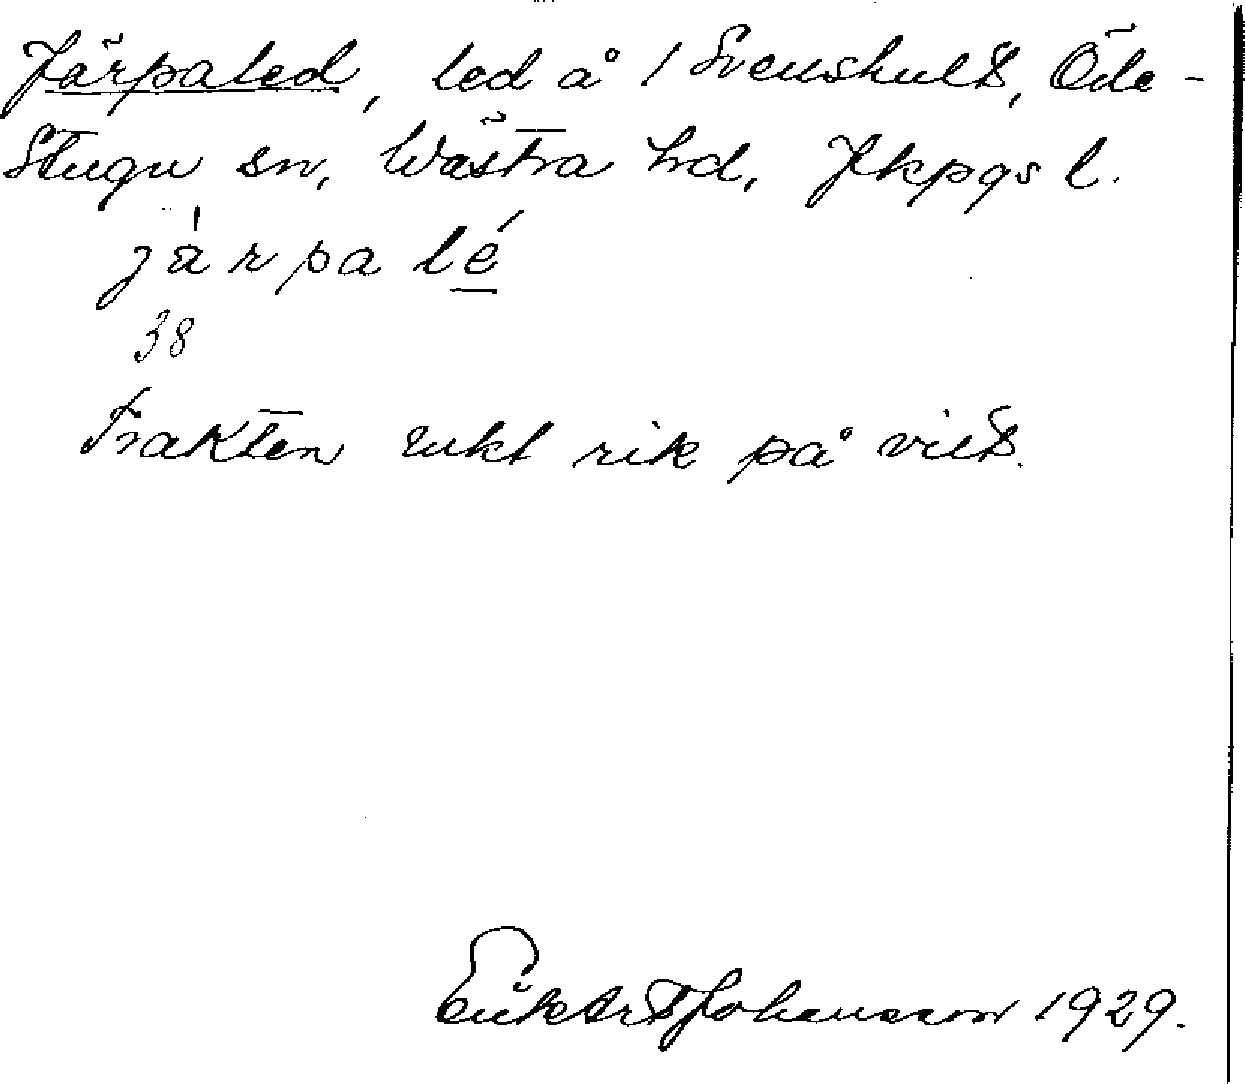 Järpaled, led å 1 Svenskult, Öde-
Stugu sn, Wästra hrd, Jkpgs l.
járpalé
38
Trakten rikt rik på vilt.
Johansson 1929.